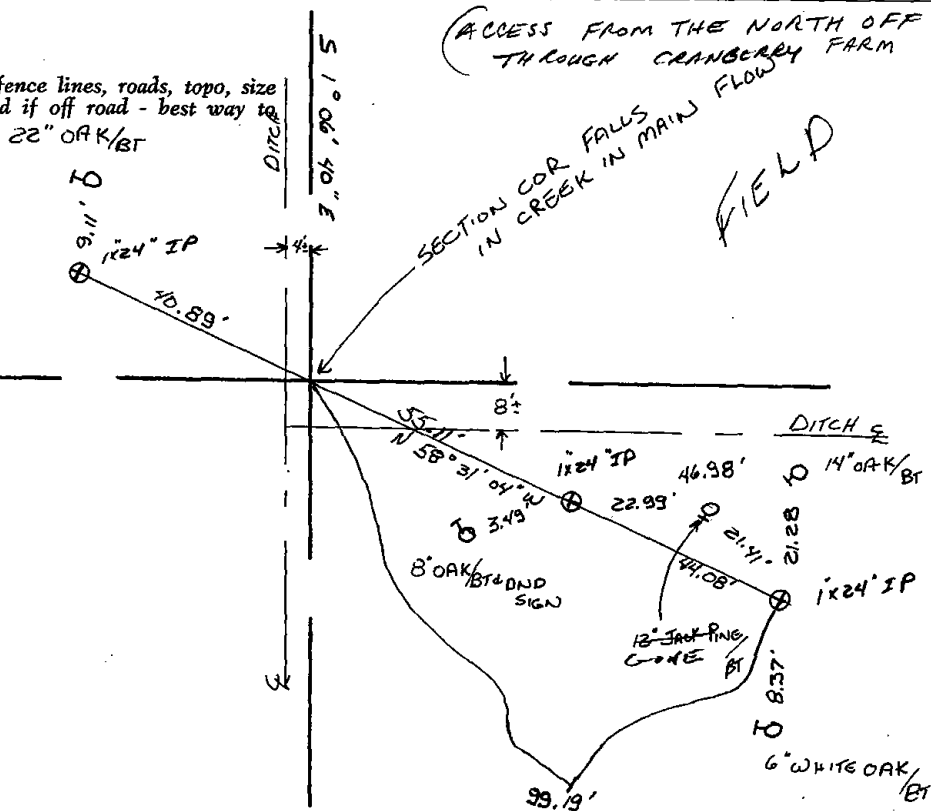 (ACCESS FROM THE NORTH OFF
THROUGH CRANBERRY FARM
fence lines, roads, topo, size
d if off road - best way to
22" OAK/BT
DITCH
S 1° 06' 40" E
SECTION COR FALLS
IN CREEK IN MAIN FLOW
FIELD
9.11'
1"x24" IP
4'±
40.89'
8'±
DITCH ℄
55.11'
N 58° 31' 04" W
1x24" IP
46.98'
14" OAK/BT
22.99'
3.49'
21.41'
21.28
8" OAK/BT & DND
SIGN
44.08'
1x24" IP
12" JACK PINE/
GONE
BT
8.37'
6" WHITE OAK/
BT
99.19'